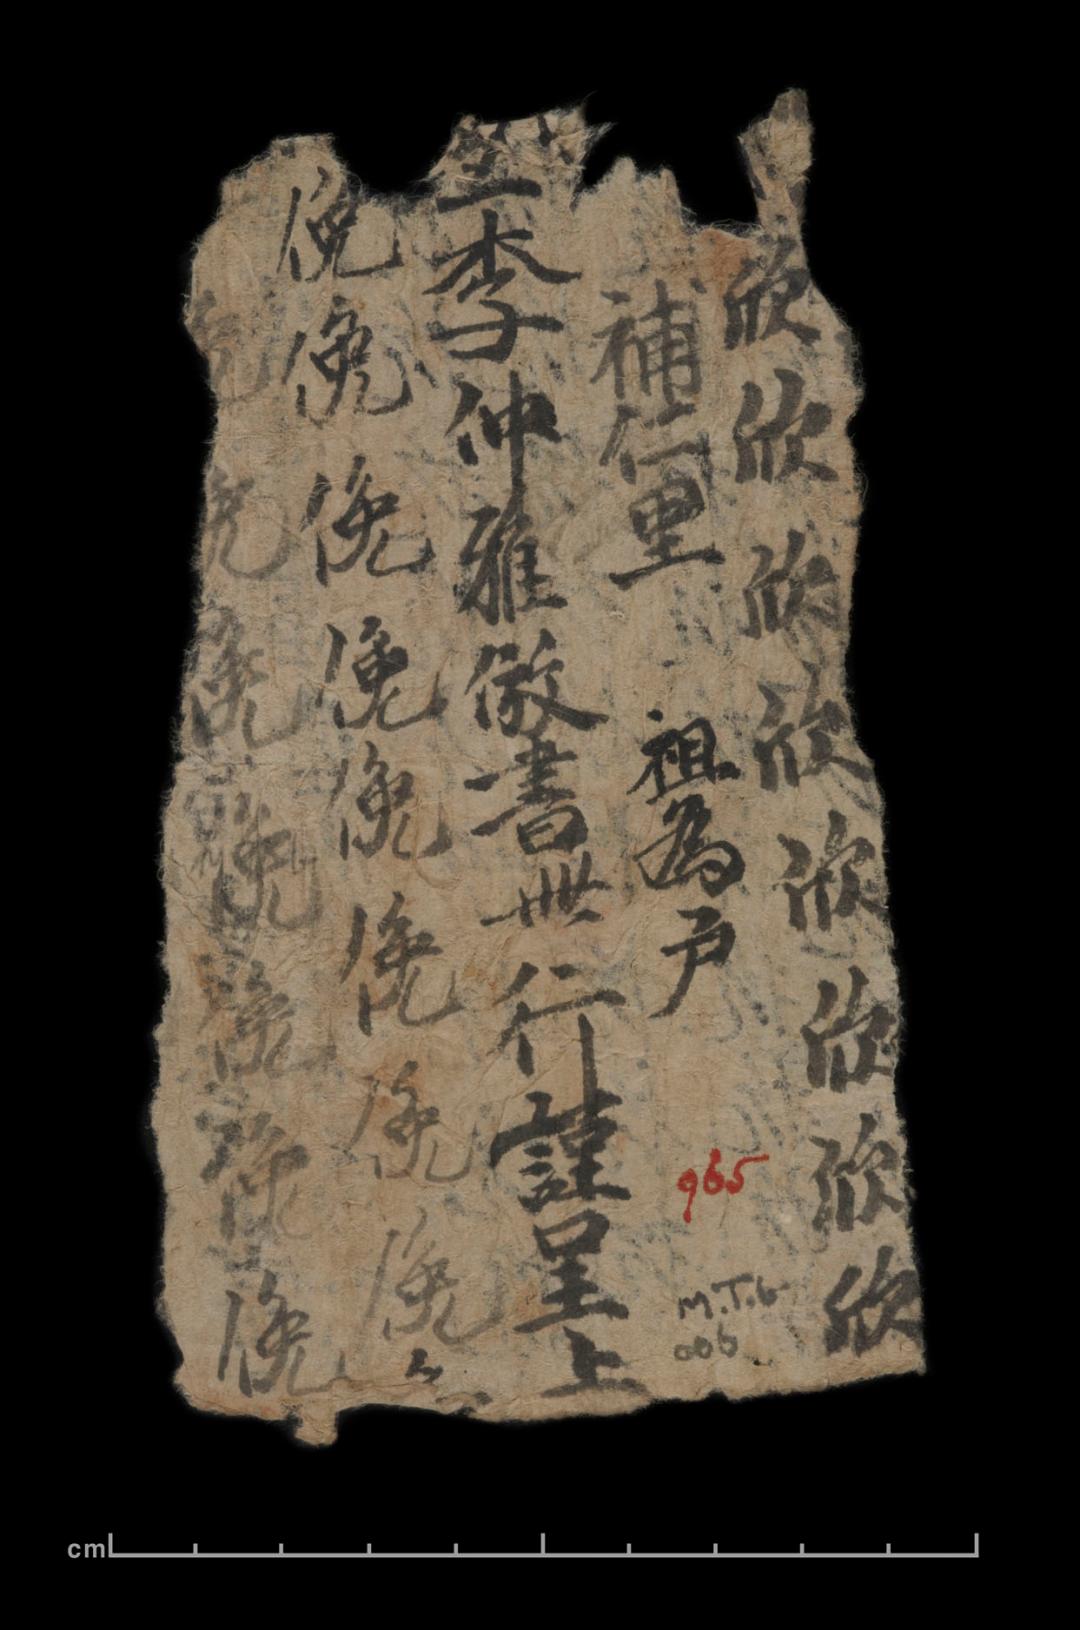 欣欣欣欣欣欣欣欣
補仁里 祖為户
965
M.T.b
006
生李仲雅倣書卌行謹呈上
俛俛俛俛俛俛俛俛
俛俛俛俛俛俛俛
cm